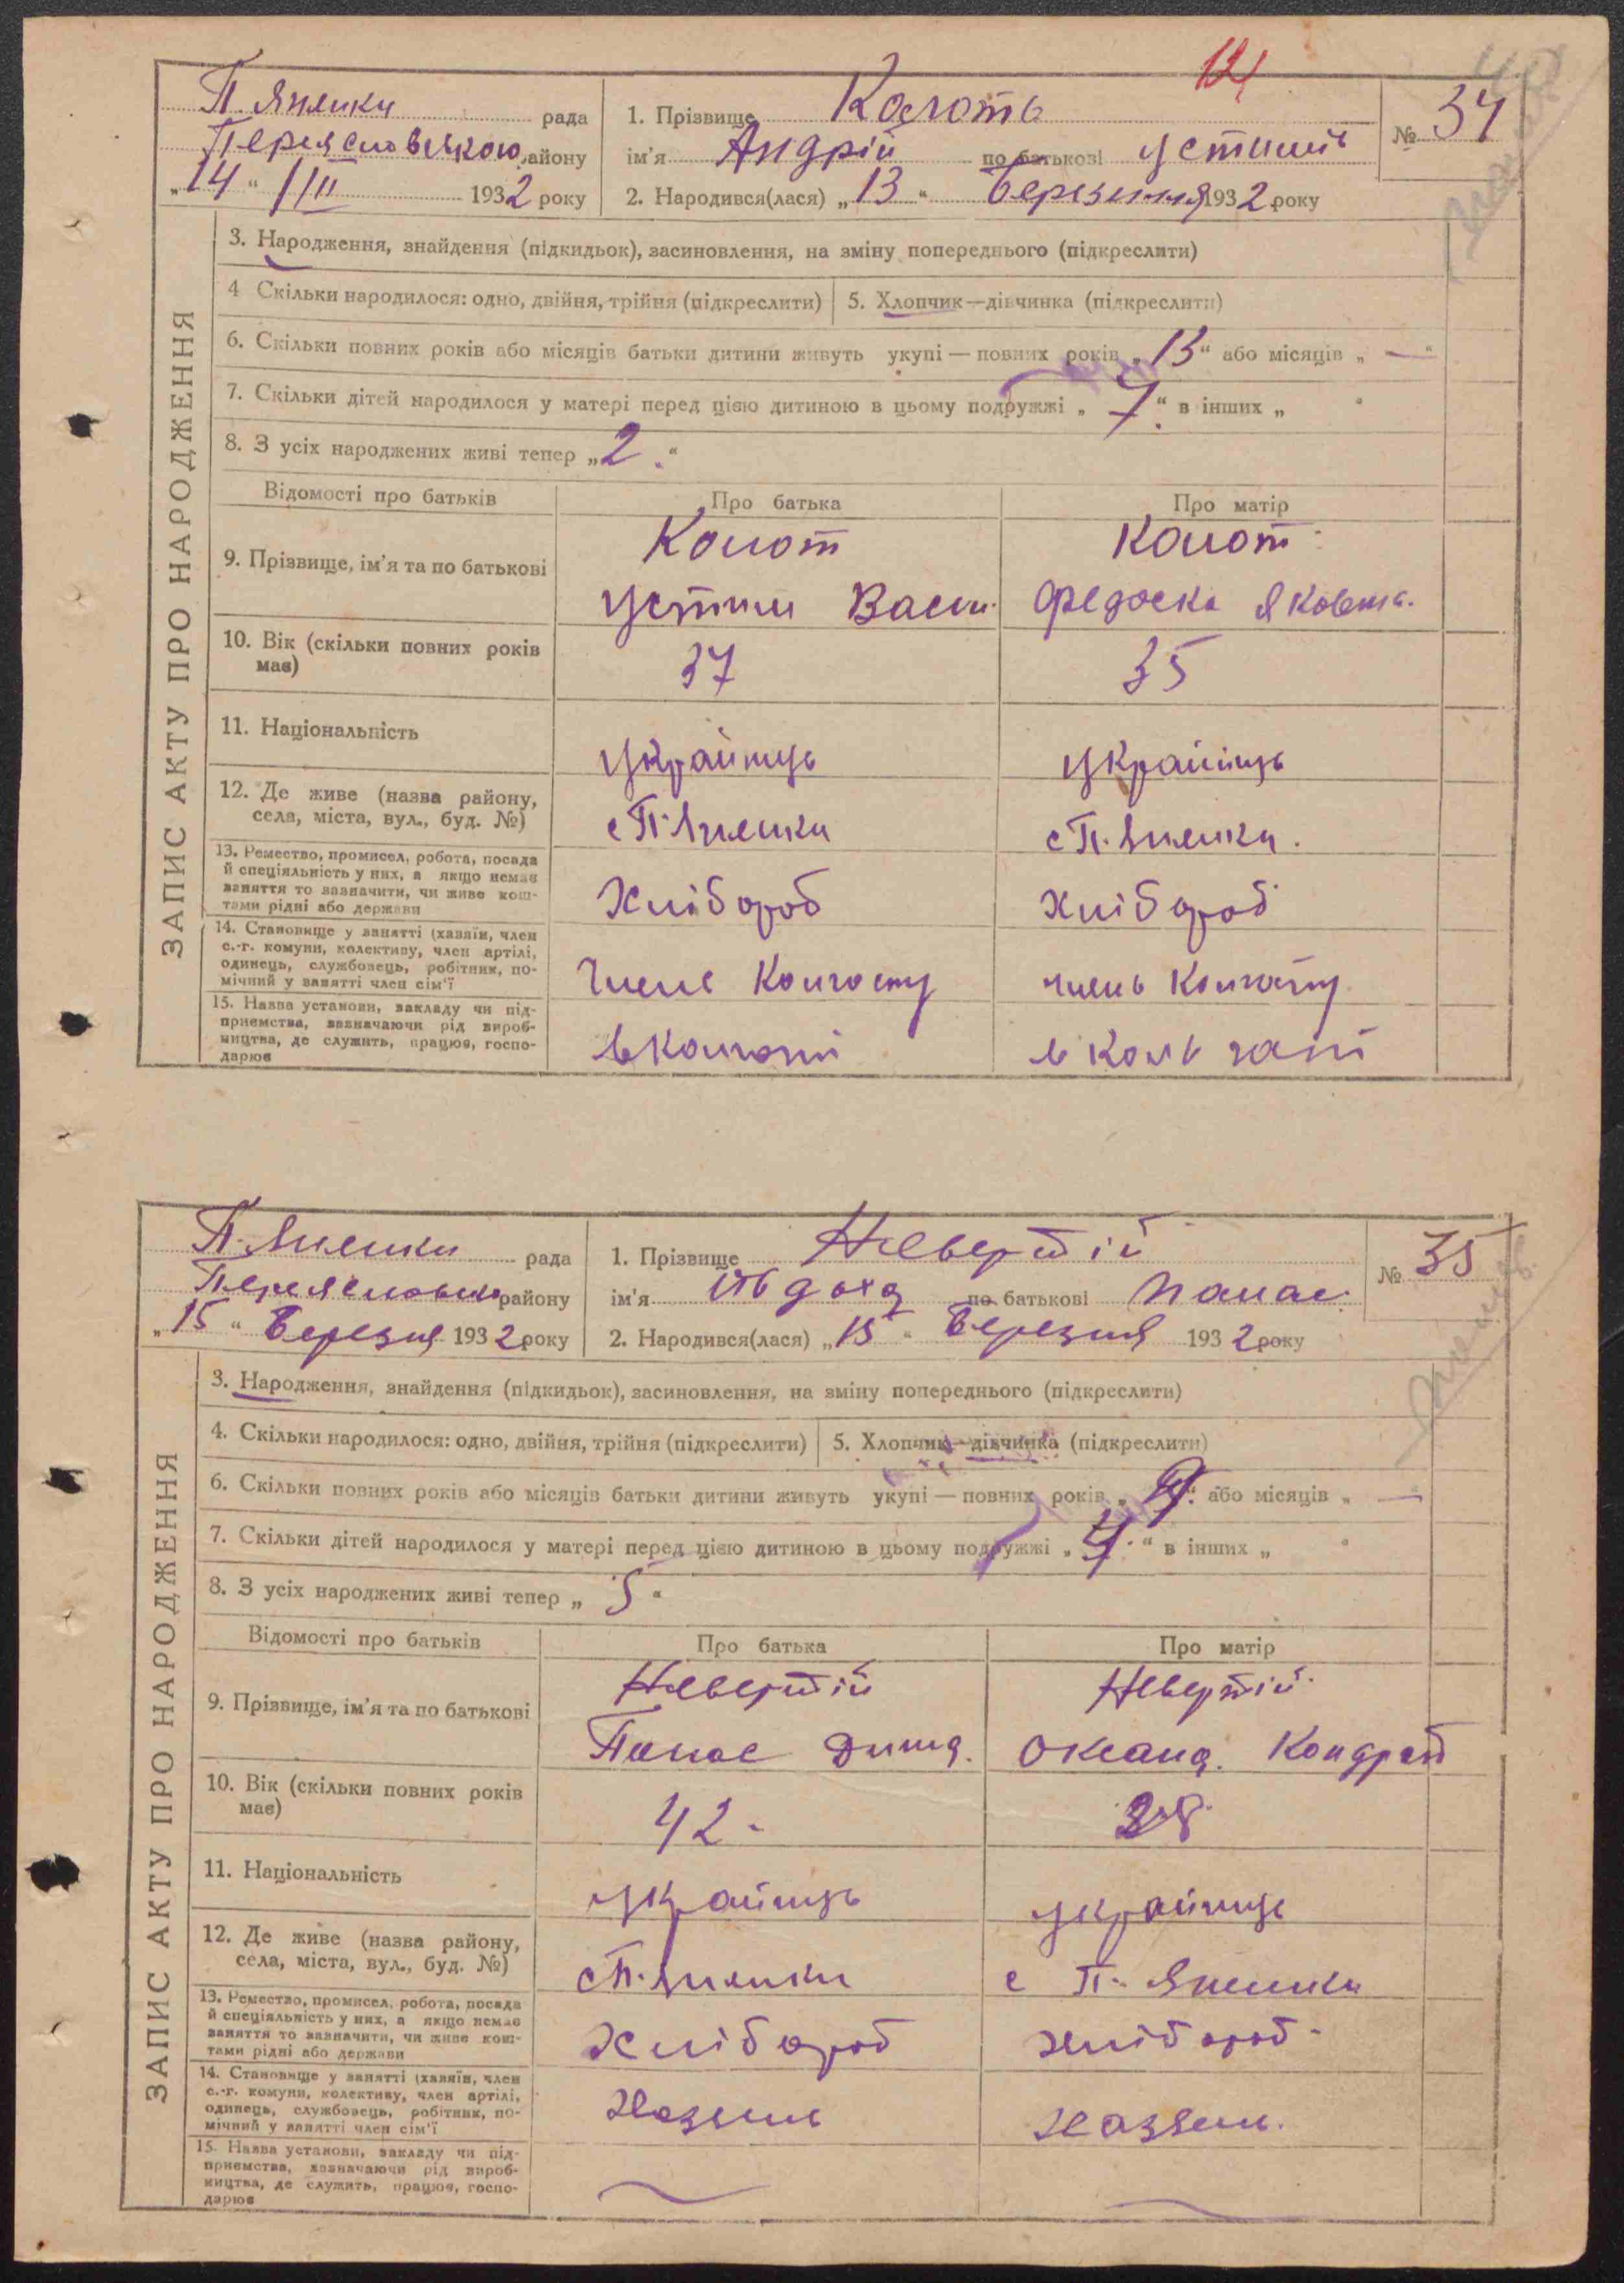 124
П. Яненки рада
Переяславського району
„14“ /III 1932 року
1. Прізвище Колоть
ім'я Андрій по батькові Устинів
2. Народився(лася) „13“ березня 1932 року
№ 34
ЗАПИС АКТУ ПРО НАРОДЖЕННЯ
3. Народження, знайдення (підкидьок), засиновлення, на зміну попереднього (підкреслити)
4 Скільки народилося: одно, двійня, трійня (підкреслити)
5. Хлопчик—дівчинка (підкреслити)
6. Скільки повних років або місяців батьки дитини живуть укупі — повних років „13“ або місяців „—“
7. Скільки дітей народилося у матері перед цією дитиною в цьому подружжі „7“ в інших „ “
8. З усіх народжених живі тепер „2.“
Відомості про батьків Про батька Про матір
9. Прізвище, ім'я та по батькові
Колот
Устин Васи.
Колот
Федоска Яковна.
10. Вік (скільки повних років
має)
37
35
11. Національність
українць
українць
12. Де живе (назва району,
села, міста, вул., буд. №)
с П. Яненки
с П. Яненки.
13. Ремество, промисел, робота, посада
й спеціяльність у них, а якщо немає
заняття то зазначити, чи живе кош-
тами рідні або держави
Хлібороб
Хлібороб
14. Становище у занятті (хазяїн, член
с.-г. комуни, колективу, член артілі,
одинець, службовець, робітник, по-
мічний у занятті член сім'ї
Члене Колгоспу
член Колгоспу
15. Назва установи, закладу чи під-
приємства, зазначаючи рід вироб-
ництва, де служить, працює, госпо-
дарює
в Колгоспі
П. Яненки рада
Переяславсько району
„15“ Березня 1932 року
1. Прізвище Невертій
ім'я по батькові Панас.
2. Народився(лася) „15“ Березня 1932 року
№ 35
ЗАПИС АКТУ ПРО НАРОДЖЕННЯ
3. Народження, знайдення (підкидьок), засиновлення, на зміну попереднього (підкреслити)
4. Скільки народилося: одно, двійня, трійня (підкреслити)
5. Хлопчик—дівчинка (підкреслити)
6. Скільки повних років або місяців батьки дитини живуть укупі — повних років „9“ або місяців „—“
7. Скільки дітей народилося у матері перед цією дитиною в цьому подружжі „4“ в інших „ “
8. З усіх народжених живі тепер „5“
Відомості про батьків Про батька Про матір
9. Прізвище, ім'я та по батькові
Невертій
Панас
Невертій
Оксана. Кондрат
10. Вік (скільки повних років
має)
42
28
11. Національність
українць
українць
12. Де живе (назва району,
села, міста, вул., буд. №)
с П. Яненки
с П. Яненки
13. Ремество, промисел, робота, посада
й спеціяльність у них, а якщо немає
заняття то зазначити, чи живе кош-
тами рідні або держави
Хлібороб
хлібороб
14. Становище у занятті (хазяїн, член
с.-г. комуни, колективу, член артілі,
одинець, службовець, робітник, по-
мічний у занятті член сім'ї
Хазяень
хазяен.
15. Назва установи, закладу чи під-
приємства, зазначаючи рід вироб-
ництва, де служить, працює, госпо-
дарює